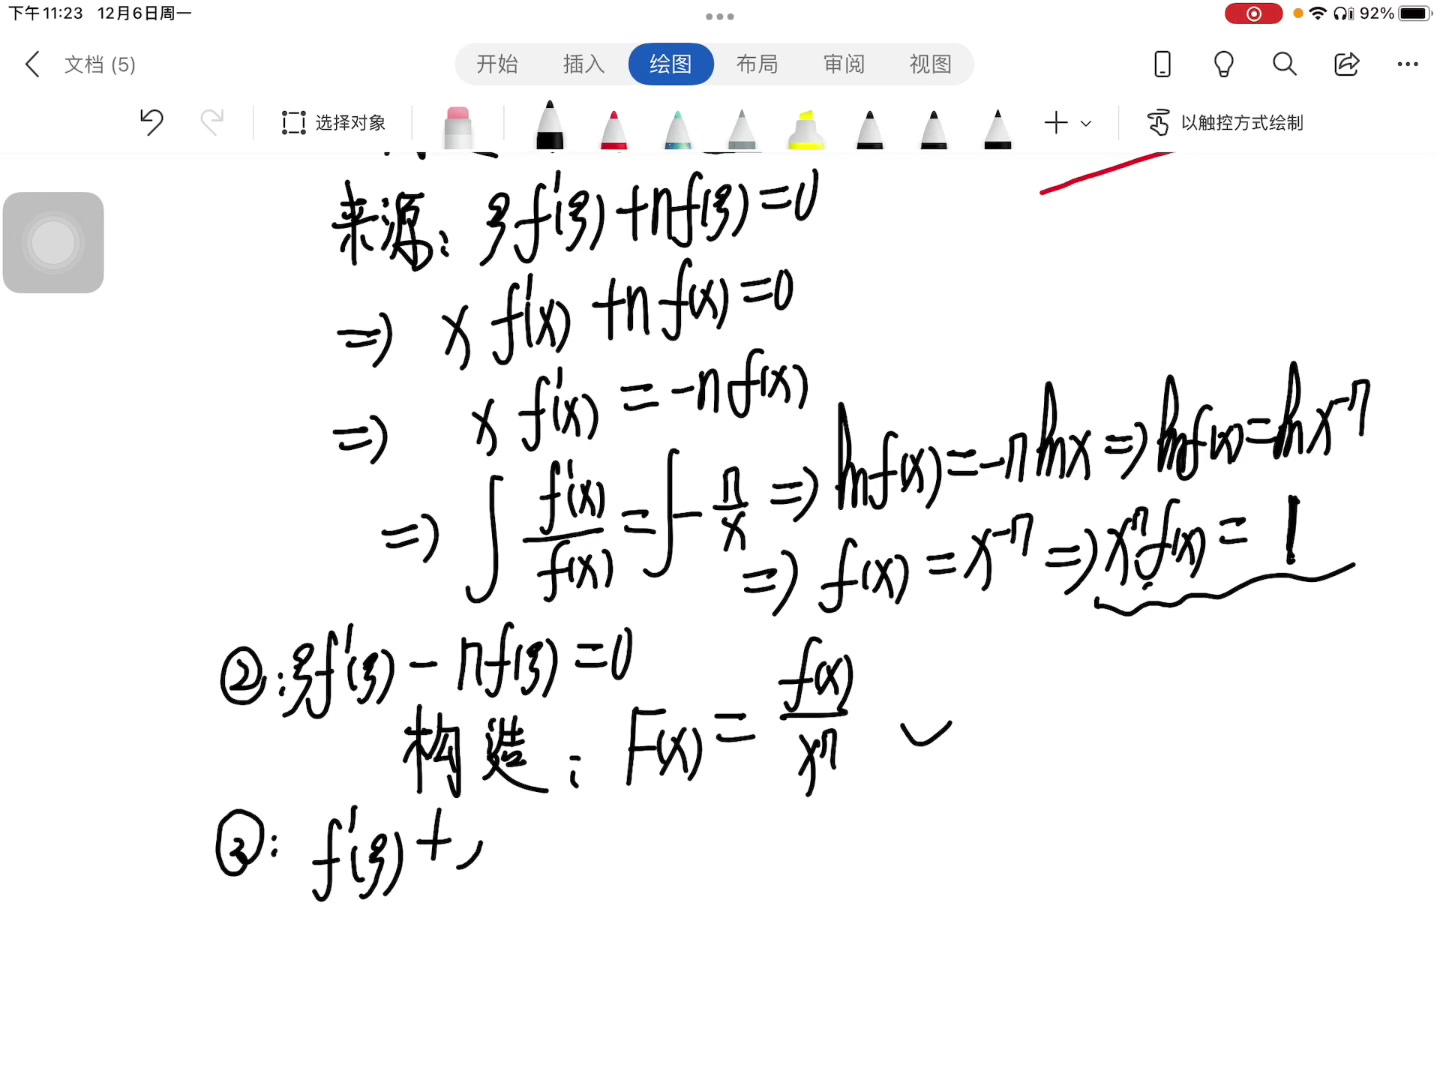 下午11:23 12月6日周一 92%
文档 (5) 开始 插入 绘图 布局 审阅 视图
选择对象 以触控方式绘制
来源: ξf'(ξ)+nf(ξ)=0
=> x f'(x) +n f(x)=0
=> x f'(x) = -n f(x)
=> ∫ f'(x)/f(x) = ∫ - n/x => ln f(x) = -n ln x => ln f(x) = ln x^-n
=> f(x) = x^-n => x^n f(x) = 1
②: ξf'(ξ) - nf(ξ) =0
构造: F(x) = f(x)/x^n
③: f'(ξ) +